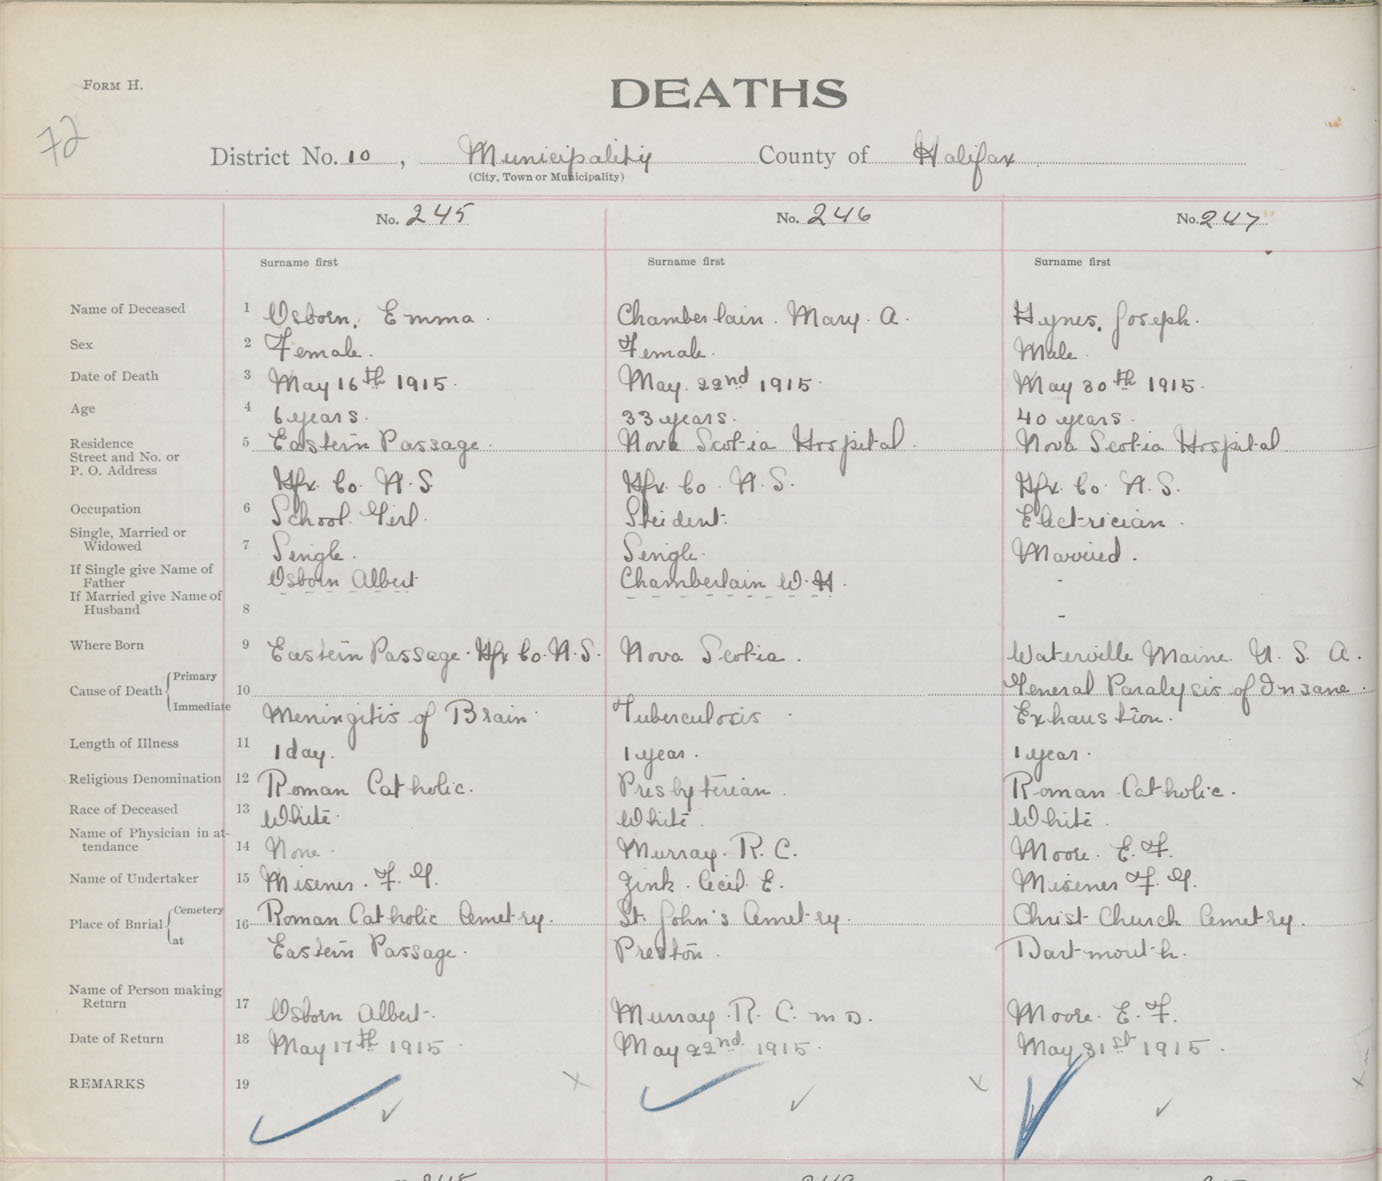 FORM H.
DEATHS
72
District No. 10, Municipality County of Halifax
(City, Town or Municipality)
No. 245 No. 246 No. 247
Surname first Surname first Surname first
Name of Deceased 1 Osborn, Emma. Chamberlain. Mary. A. Hynes, Joseph.
Sex 2 Female. Female. Male.
Date of Death 3 May 16th 1915. May. 22nd 1915. May 30th 1915.
Age 4 6 years. 33 years. 40 years.
Residence 5 Eastern Passage. Nova Scotia Hospital. Nova Scotia Hospital.
Street and No. or
P. O. Address Hfx. Co. N.S. Hfx. Co. N.S. Hfx. Co. N.S.
Occupation 6 School. Girl. Student. Electrician.
Single, Married or
Widowed 7 Single. Single. Married.
If Single give Name of
Father Osborn Albert Chamberlain W. H. -
If Married give Name of
Husband 8 -
Where Born 9 Eastern Passage. Hfx Co. N.S. Nova Scotia. Waterville Maine. U. S. A.
Cause of Death Primary 10 General Paralysis of Insane.
Immediate Meningitis of Brain. Tuberculosis. Exhaustion.
Length of Illness 11 1 day. 1 year. 1 year.
Religious Denomination 12 Roman Catholic. Presbyterian. Roman Catholic.
Race of Deceased 13 White. White. White.
Name of Physician in at-
tendance 14 None. Murray. R. C. Moore. E. F.
Name of Undertaker 15 Misener. F. G. Zink. Cecil. E. Misener F. G.
Place of Burial Cemetery 16 Roman Catholic Cemetry. St. John's Cemetry. Christ Church Cemetry.
at Eastern Passage. Preston. Dartmouth.
Name of Person making
Return 17 Osborn Albert. Murray. R. C. M D. Moore. E. F.
Date of Return 18 May 17th 1915. May 22nd. 1915. May 31st 1915.
REMARKS 19